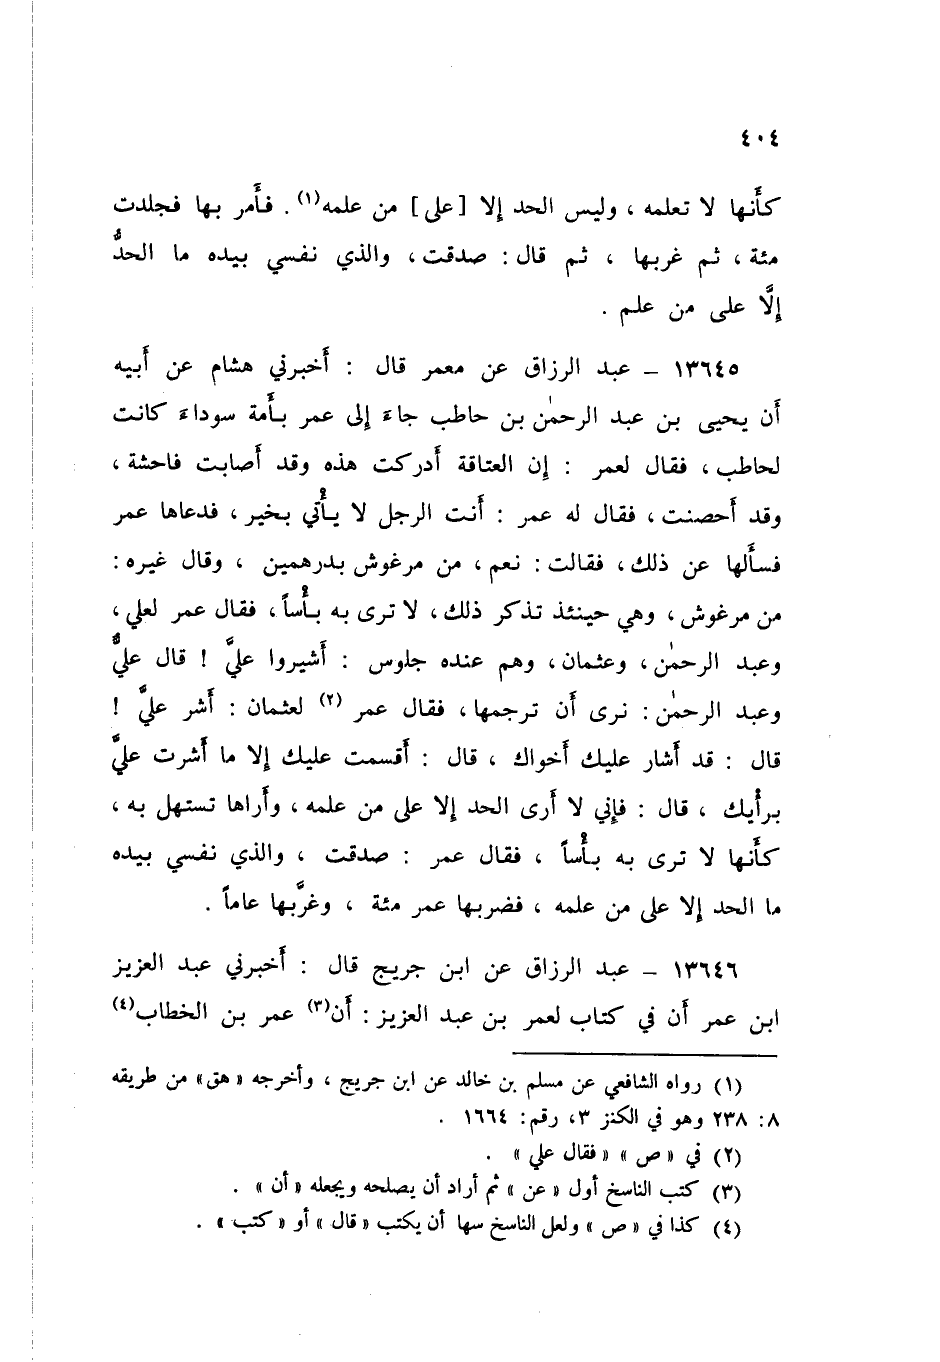 ٤٠٤
كأَنها لا تعلمه ، وليس الحد إلا [على] من علمه(١) . فأَمر بها فجلدت
مئة ، ثم غربها ، ثم قال : صدقت ، والذي نفسي بيده ما الحدُّ
إلَّا على من علم .
١٣٦٤٥ – عبد الرزاق عن معمر قال : أَخبرني هشام عن أَبيه
أَن يحيى بن عبد الرحمٰن بن حاطب جاءَ إلى عمر بأَمة سوداءَ كانت
لحاطب ، فقال لعمر : إن العتاقة أَدركت هذه وقد أَصابت فاحشة ،
وقد أَحصنت ، فقال له عمر : أَنت الرجل لا يأْتي بخير ، فدعاها عمر
فسأَلها عن ذلك ، فقالت : نعم ، من مرغوش بدرهمين ، وقال غيره :
من مرغوش ، وهي حينئذ تذكر ذلك ، لا ترى به بأْساً ، فقال عمر لعلي ،
وعبد الرحمٰن ، وعثمان ، وهم عنده جلوس : أَشيروا عليَّ ! قال عليٌّ
وعبد الرحمٰن : نرى أَن ترجمها ، فقال عمر (٢) لعثمان : أَشر عليَّ !
قال : قد أَشار عليك أَخواك ، قال : أَقسمت عليك إلا ما أَشرت عليَّ
برأْيك ، قال : فإني لا أَرى الحد إلا على من علمه ، وأَراها تستهل به ،
كأَنها لا ترى به بأْساً ، فقال عمر : صدقت ، والذي نفسي بيده
ما الحد إلا على من علمه ، فضربها عمر مئة ، وغرَّبها عاماً .
١٣٦٤٦ – عبد الرزاق عن ابن جريج قال : أَخبرني عبد العزيز
ابن عمر أَن في كتاب لعمر بن عبد العزيز : أَن(٣) عمر بن الخطاب(٤)
(١) رواه الشافعي عن مسلم بن خالد عن ابن جريج ، وأخرجه « هق » من طريقه
٨: ٢٣٨ وهو في الكنز ٣، رقم: ١٦٦٤ .
(٢) في « ص » « فقال علي » .
(٣) كتب الناسخ أول « عن » ثم أراد أن يصلحه ويجعله « أن » .
(٤) كذا في « ص » ولعل الناسخ سها أن يكتب « قال » أو « كتب » .